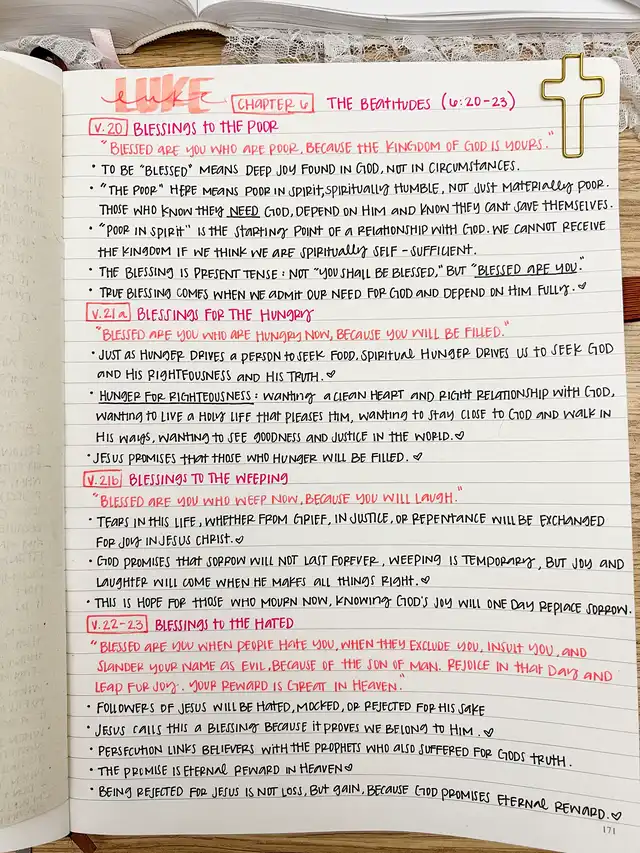 LUKE
luke CHAPTER 6 THE BEATITUDES (6:20-23)
V.20 BLESSINGS TO THE POOR
"BLESSED ARE YOU WHO ARE POOR, BECAUSE THE KINGDOM OF GOD IS YOURS."
• TO BE "BLESSED" MEANS DEEP JOY FOUND IN GOD, NOT IN CIRCUMSTANCES.
• "THE POOR" HERE MEANS POOR IN SPIRIT, SPIRITUALLY HUMBLE, NOT JUST MATERIALLY POOR.
THOSE WHO KNOW THEY NEED GOD, DEPEND ON HIM AND KNOW THEY CANT SAVE THEMSELVES.
• "POOR IN SPIRIT" IS THE STARTING POINT OF A RELATIONSHIP WITH GOD. WE CANNOT RECEIVE
THE KINGDOM IF WE THINK WE ARE SPIRITUALLY SELF-SUFFICIENT.
• THE BLESSING IS PRESENT TENSE: NOT "YOU SHALL BE BLESSED," BUT "BLESSED ARE YOU."
• TRUE BLESSING COMES WHEN WE ADMIT OUR NEED FOR GOD AND DEPEND ON HIM FULLY. ♡
V.21a BLESSINGS FOR THE HUNGRY
"BLESSED ARE YOU WHO ARE HUNGRY NOW, BECAUSE YOU WILL BE FILLED."
• JUST AS HUNGER DRIVES A PERSON TO SEEK FOOD, SPIRITUAL HUNGER DRIVES US TO SEEK GOD
AND HIS RIGHTEOUSNESS AND HIS TRUTH. ♡
• HUNGER FOR RIGHTEOUSNESS: WANTING A CLEAN HEART AND RIGHT RELATIONSHIP WITH GOD,
WANTING TO LIVE A HOLY LIFE THAT PLEASES HIM, WANTING TO STAY CLOSE TO GOD AND WALK IN
HIS WAYS, WANTING TO SEE GOODNESS AND JUSTICE IN THE WORLD. ♡
• JESUS PROMISES THAT THOSE WHO HUNGER WILL BE FILLED. ♡
V.21b BLESSINGS TO THE WEEPING
"BLESSED ARE YOU WHO WEEP NOW, BECAUSE YOU WILL LAUGH."
• TEARS IN THIS LIFE, WHETHER FROM GRIEF, IN JUSTICE, OR REPENTANCE WILL BE EXCHANGED
FOR JOY IN JESUS CHRIST. ♡
• GOD PROMISES THAT SORROW WILL NOT LAST FOREVER, WEEPING IS TEMPORARY, BUT JOY AND
LAUGHTER WILL COME WHEN HE MAKES ALL THINGS RIGHT. ♡
• THIS IS HOPE FOR THOSE WHO MOURN NOW, KNOWING GOD'S JOY WILL ONE DAY REPLACE SORROW.
V.22-23 BLESSINGS TO THE HATED
"BLESSED ARE YOU WHEN PEOPLE HATE YOU, WHEN THEY EXCLUDE YOU, INSULT YOU, AND
SLANDER YOUR NAME AS EVIL, BECAUSE OF THE SON OF MAN. REJOICE IN THAT DAY AND
LEAP FOR JOY. YOUR REWARD IS GREAT IN HEAVEN."
• FOLLOWERS OF JESUS WILL BE HATED, MOCKED, OR REJECTED FOR HIS SAKE
• JESUS CALLS THIS A BLESSING BECAUSE IT PROVES WE BELONG TO HIM. ♡
• PERSECUTION LINKS BELIEVERS WITH THE PROPHETS WHO ALSO SUFFERED FOR GODS TRUTH.
• THE PROMISE IS ETERNAL REWARD IN HEAVEN ♡
• BEING REJECTED FOR JESUS IS NOT LOSS, BUT GAIN, BECAUSE GOD PROMISES ETERNAL REWARD. ♡
171